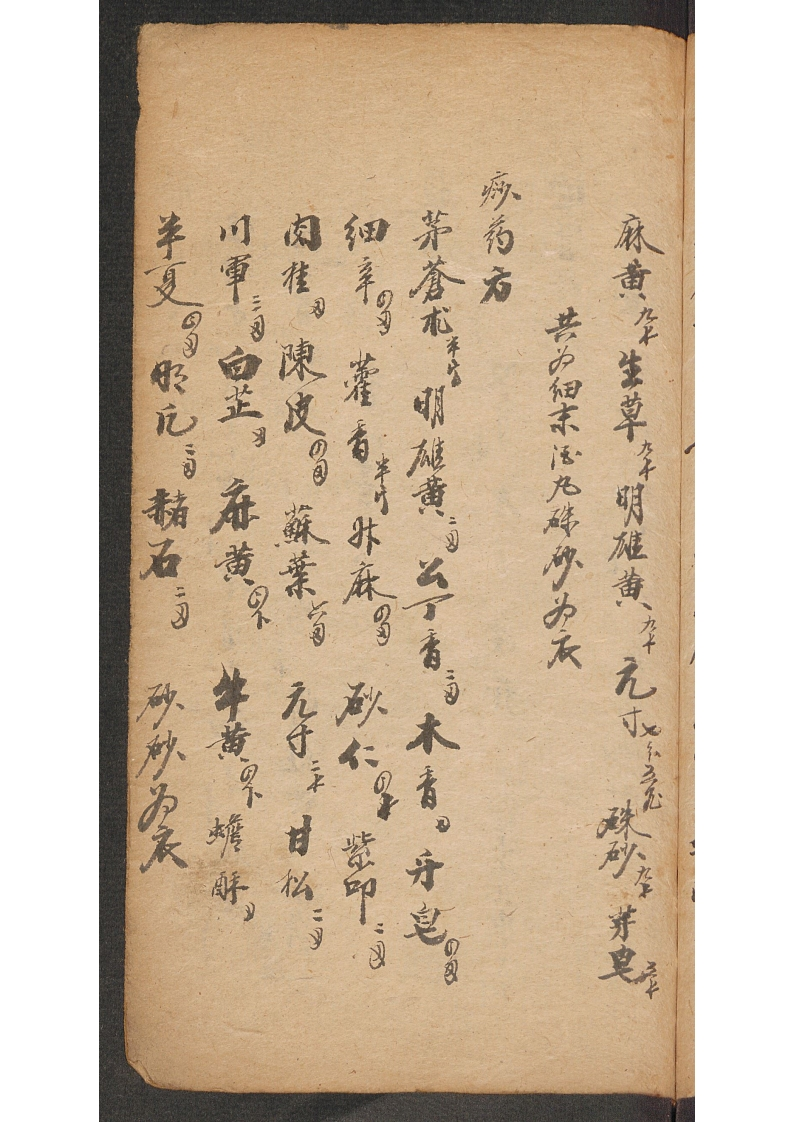 麻黄九卜 生草九卜 明雄黄九卜 元寸七分五厘 硃砂九卜 芽皂六卜
共为细末酒丸硃砂为衣
痧药方
茅蒼朮半斤 明雄黄二两 公丁香二两 木香两 牙皂四两
细辛四两 藿香半斤 升麻四两 砂仁四卜 紫叩二两
肉桂两 陳皮四两 蘇葉六两 元寸二卜 甘松二两
川軍三两 白芷两 麻黄四卜 牛黄四卜 蟾酥两
半夏四两 明凡二两 赭石二两 砂砂为衣